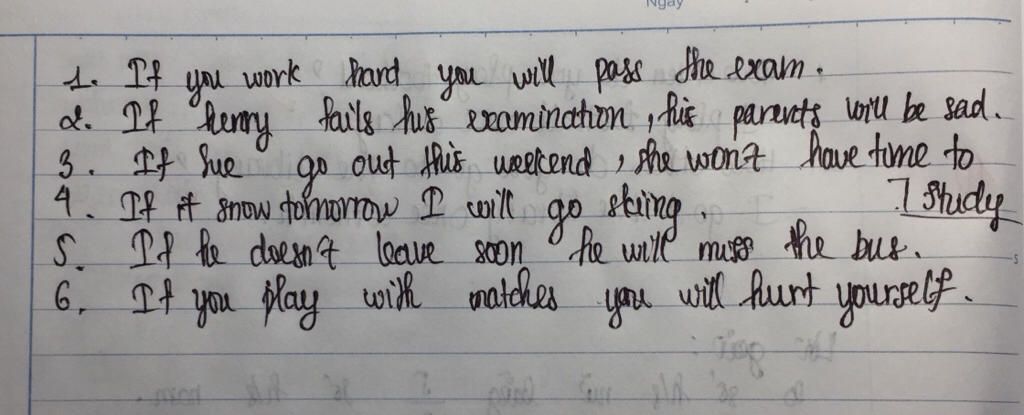 Ngày
1. If you work hard you will pass the exam.
2. If henry fails his examination, his parents will be sad.
3. If Sue go out this weekend, she won't have time to
4. If it snow tomorrow I will go skiing. study
5. If he doesn't leave soon he will miss the bus.
6. If you play with matches you will hurt yourself.